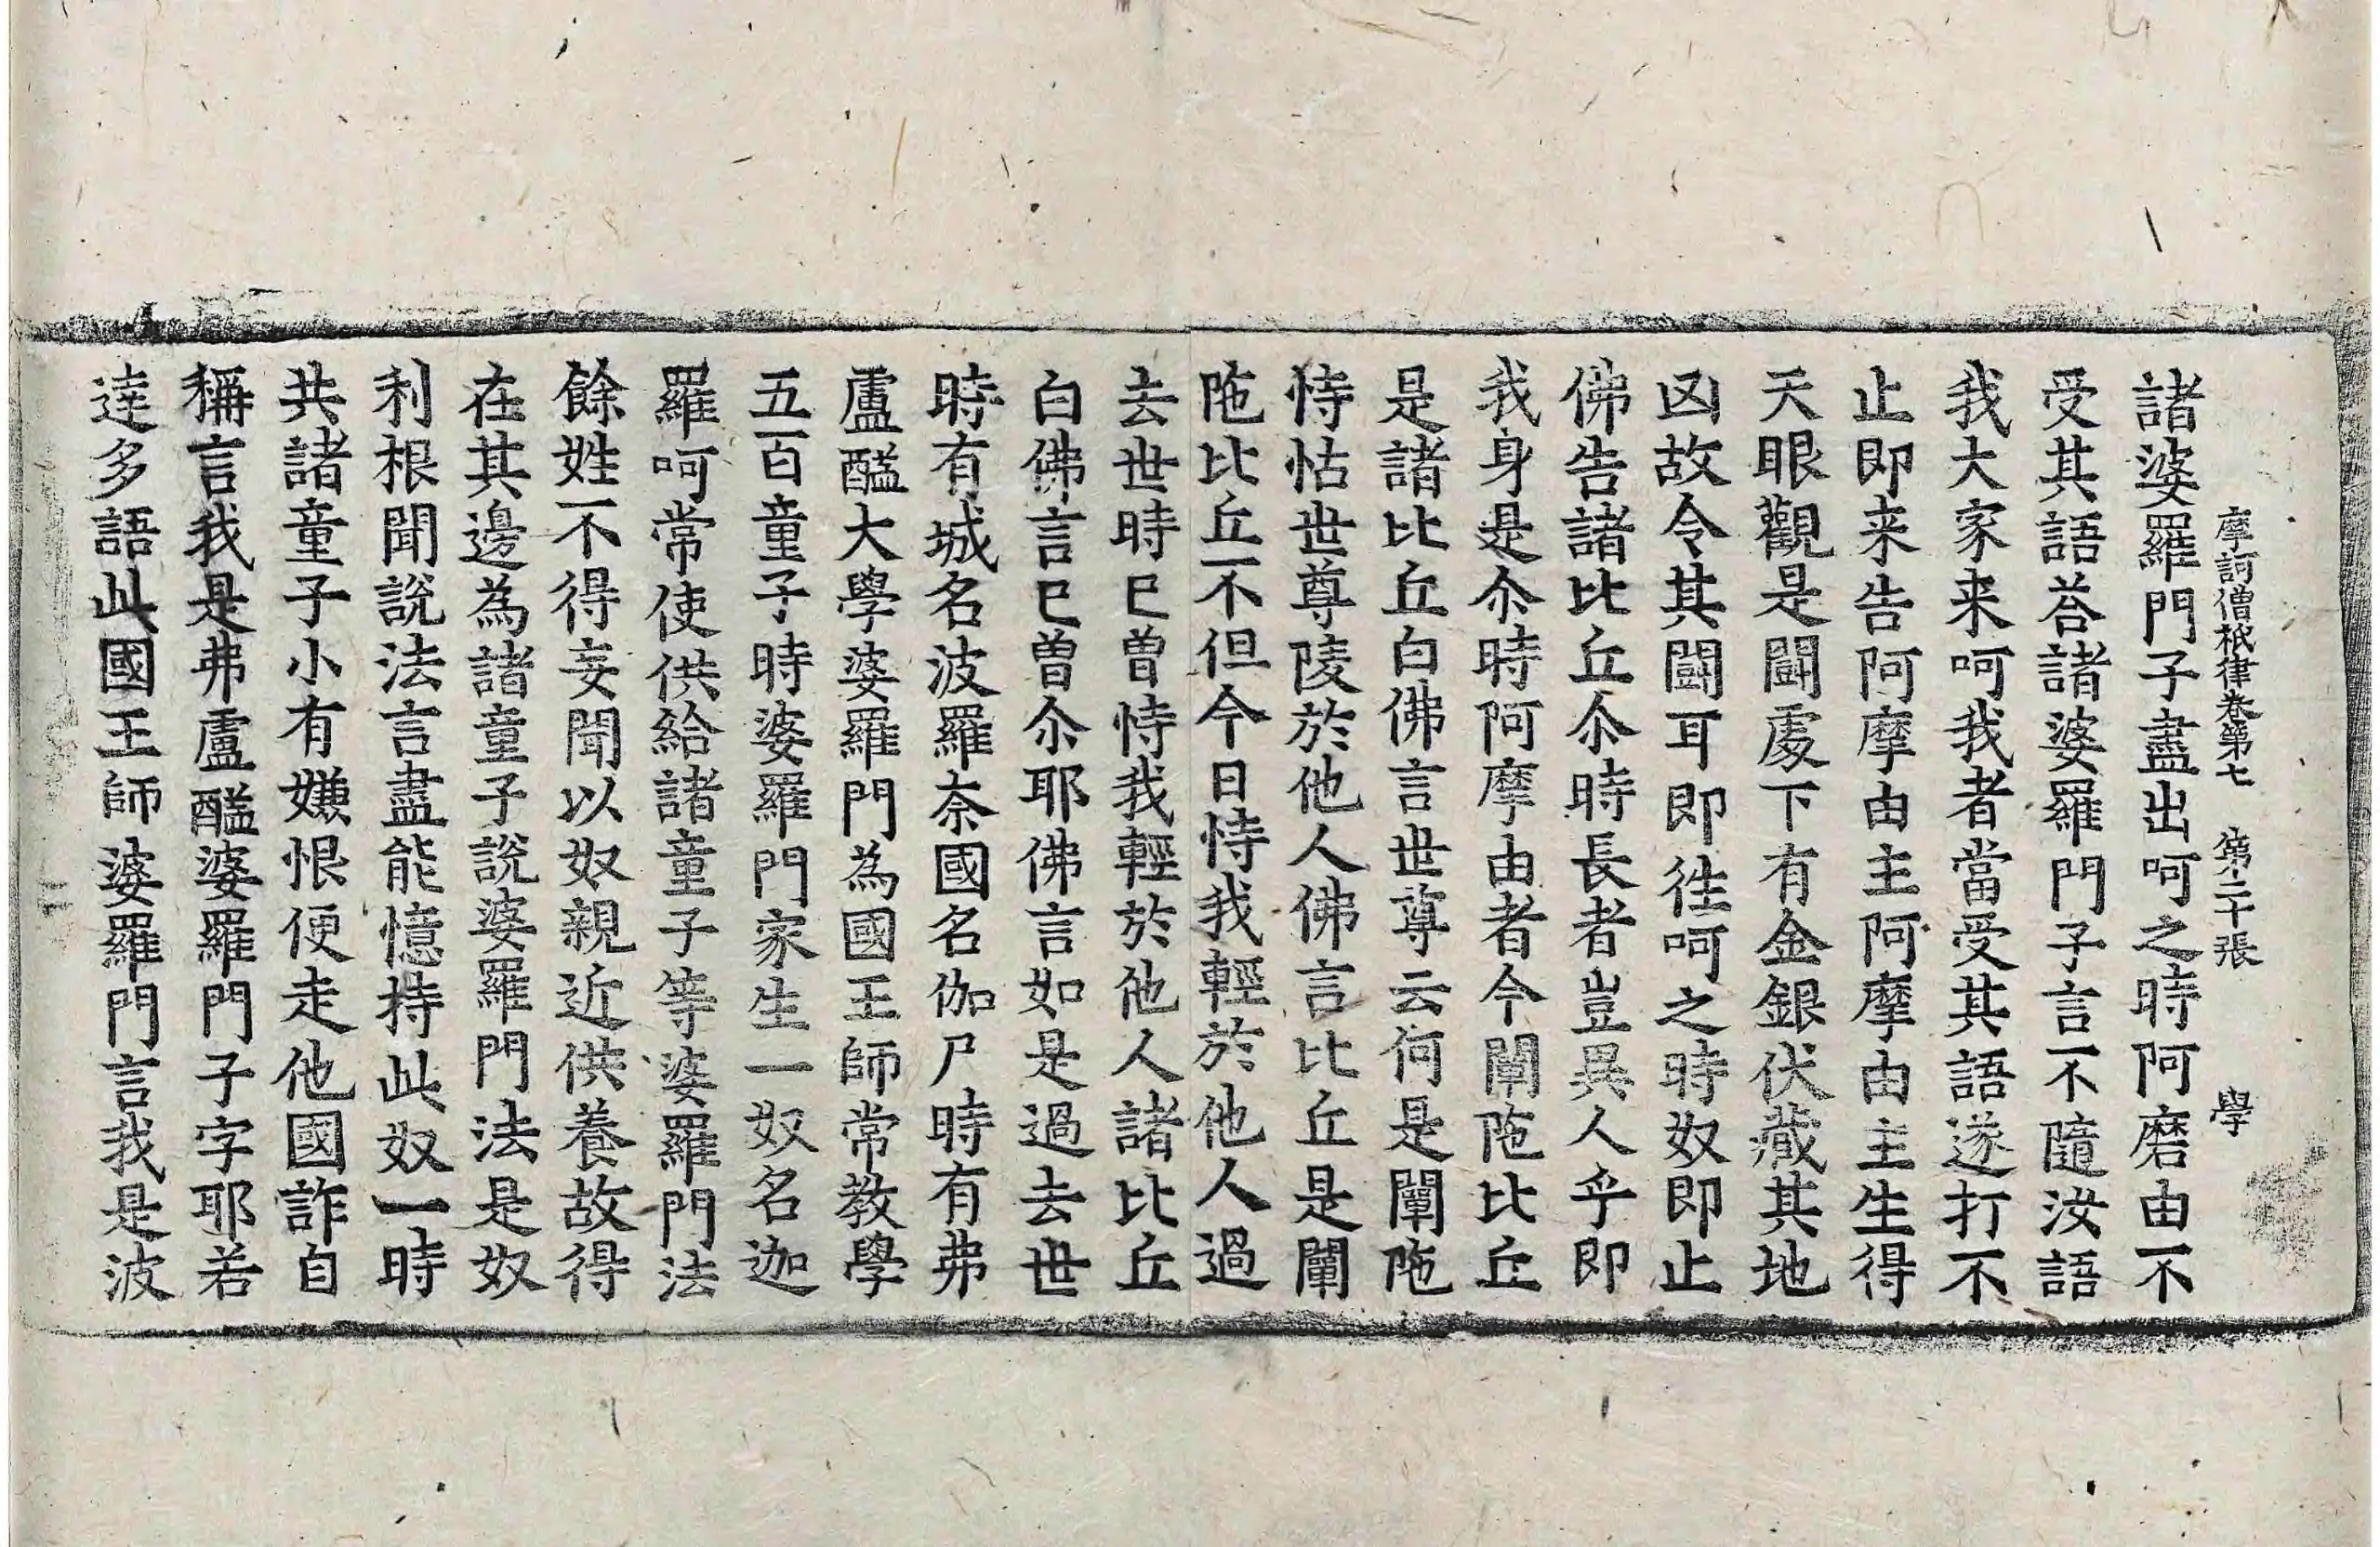 摩訶僧祇律卷第七 第二十張 學
諸婆羅門子盡出呵之時阿磨由不
受其語荅諸婆羅門子言不隨汝語
我大家来呵我者當受其語遂打不
止即来告阿摩由主阿摩由主生得
天眼觀是鬪處下有金銀伏藏其地
凶故令其鬪耳即往呵之時奴即止
佛告諸比丘尒時長者豈異人乎即
我身是尒時阿摩由者今闡陁比丘
是諸比丘白佛言世尊云何是闡陁
恃怙世尊陵於他人佛言比丘是闡
陁比丘不但今日恃我輕於他人過
去世時已曾恃我輕於他人諸比丘
白佛言已曾尒耶佛言如是過去世
時有城名波羅奈國名伽尸時有弗
盧醯大學婆羅門為國王師常教學
五百童子時婆羅門家生一奴名迦
羅呵常使供給諸童子等婆羅門法
餘姓不得妄聞以奴親近供養故得
在其邊為諸童子說婆羅門法是奴
利根聞說法言盡能憶持此奴一時
共諸童子小有嫌恨便走他國詐自
稱言我是弗盧醯婆羅門子字耶若
達多語此國王師婆羅門言我是波